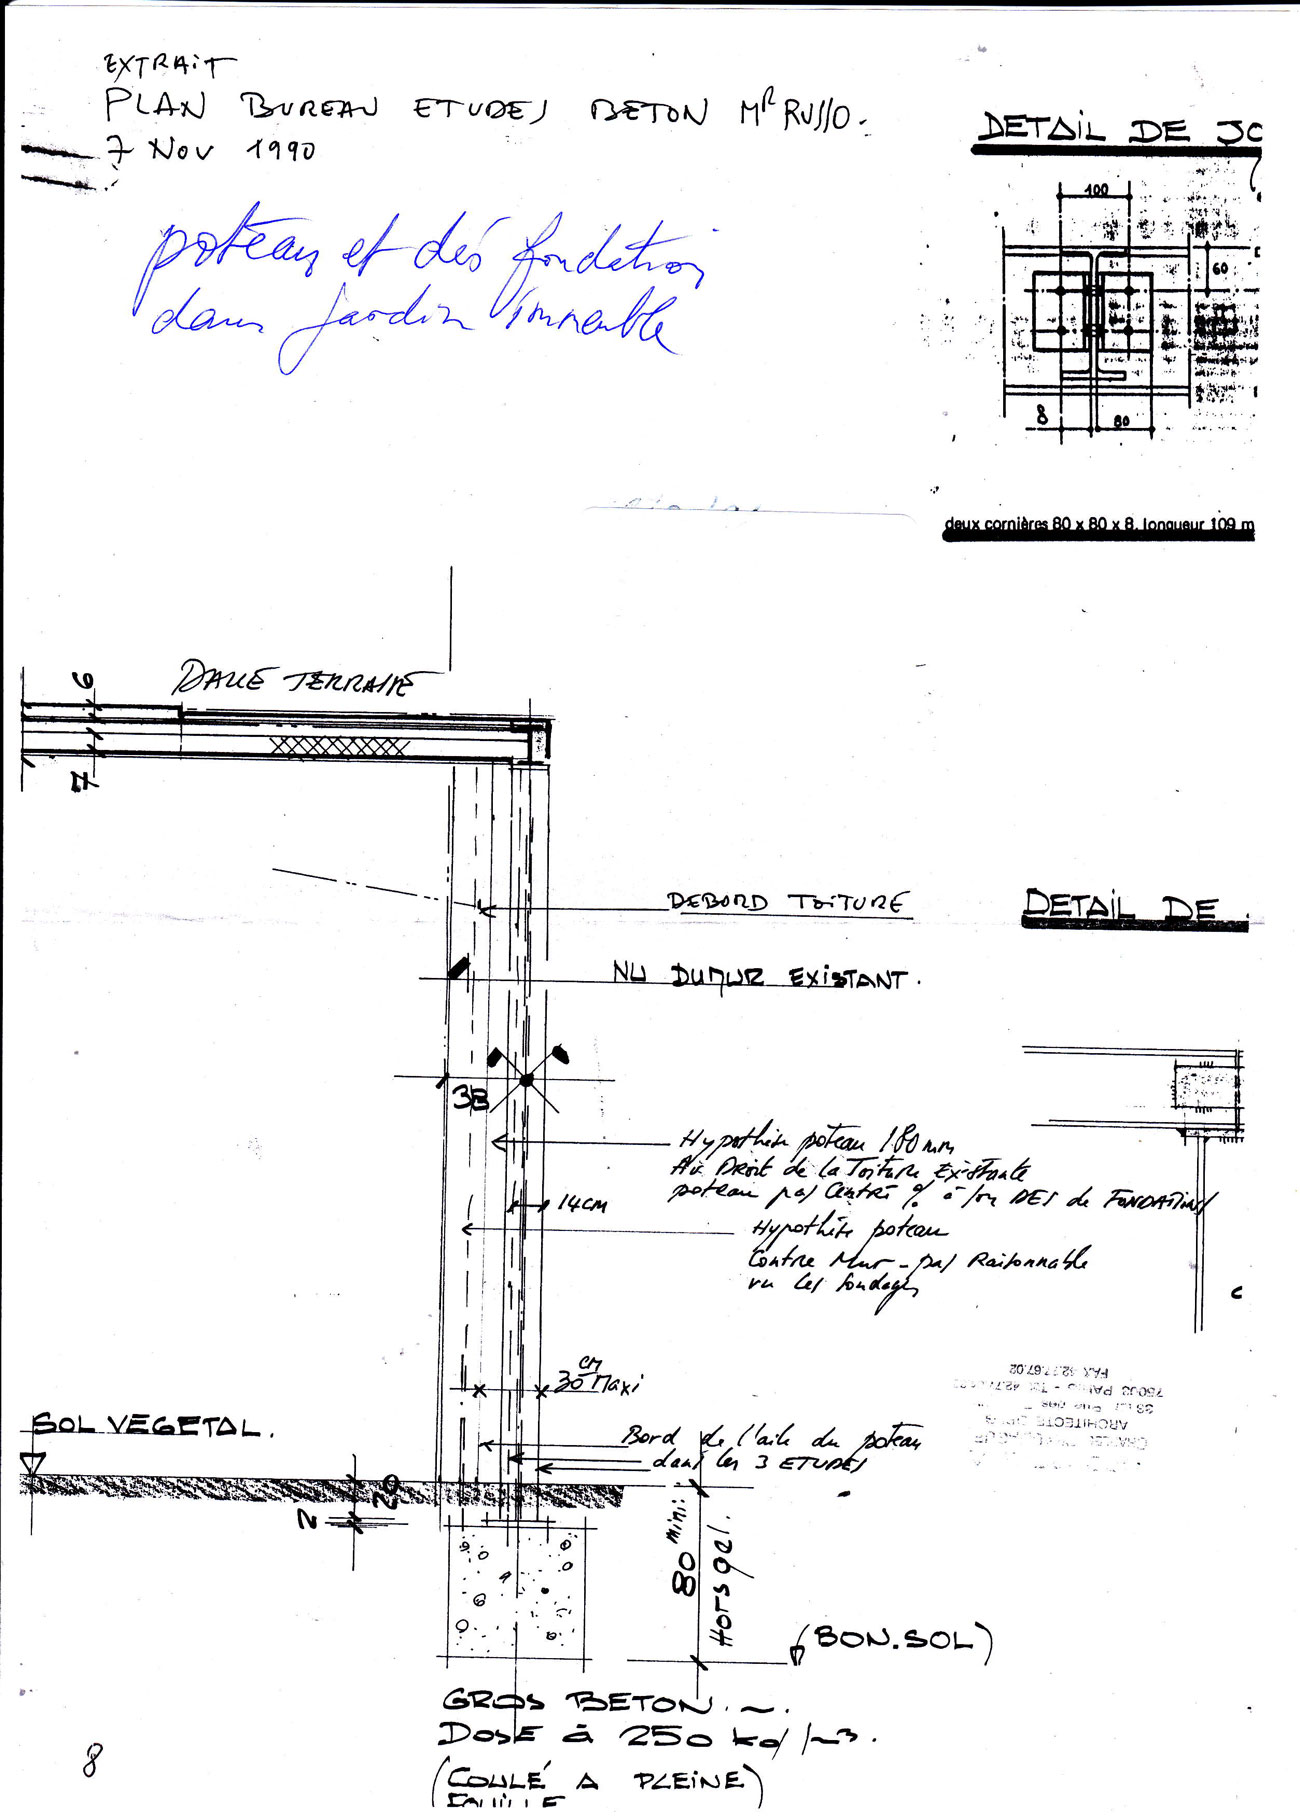 EXTRAIT
PLAN BUREAU ETUDES BETON Mr RUSSO.
7 Nov 1990
poteau et dés fondation
dans jardin immeuble
DETAIL DE JO
100
60
8
80
deux cornières 80 x 80 x 8, longueur 109 m
DALLE TERRASSE
6
7
DEBORD TOITURE
DETAIL DE
NU DU MUR EXISTANT.
38
Hypothèse poteau 180mm
Au Droit de la Toiture Existante
poteau pas Centré % à son DES de FONDATION
14cm
Hypothèse poteau
Contre Mur - pas Raisonnable
vu les sondages
c
30 cm Maxi
FAX 42.77.67.02
75003 PARIS
ARCHITECTE
SOL VEGETAL.
Bord de l'aile du poteau
dans les 3 ETUDES
20
2
80 mini:
Hors gel.
(BON.SOL)
GROS BETON.
DOSE à 250 kg/m3.
(COULÉ A PLEINE)
FOUILLE
8